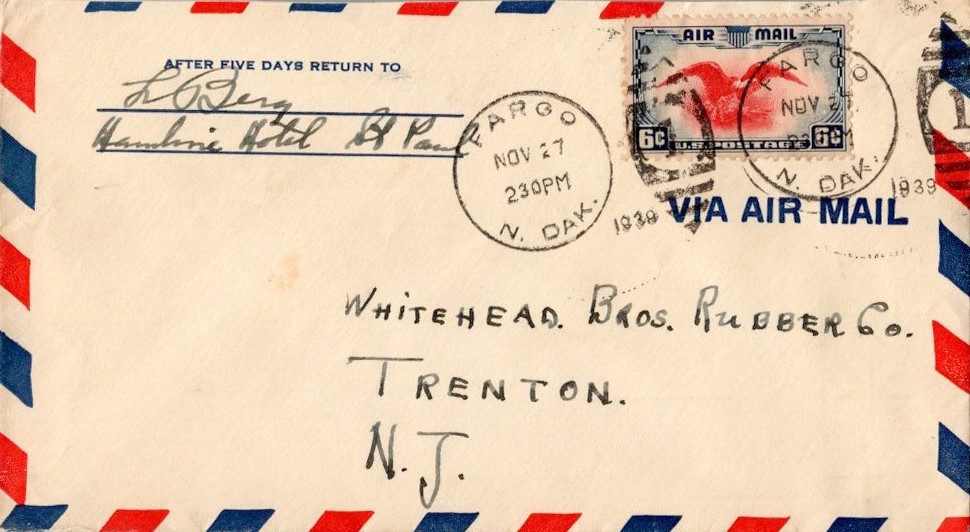 AFTER FIVE DAYS RETURN TO
L Berg
Hamline Hotel St Paul
AIR MAIL
6¢ 6¢
U.S. POSTAGE
FARGO
NOV 27
230PM
N. DAK.
1939
FARGO
NOV 2
N. DAK.
1939
VIA AIR MAIL
WHITEHEAD. BROS. RUBBER Co.
TRENTON.
N.J.